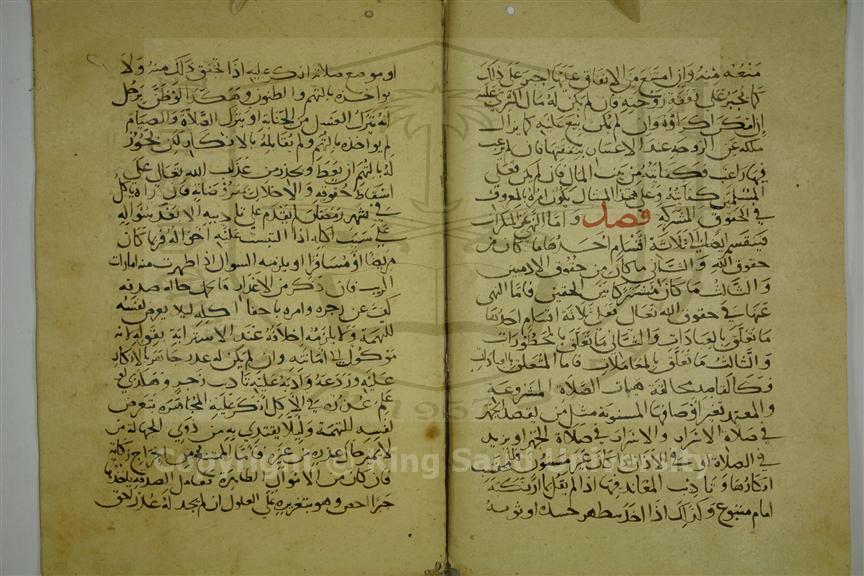 منعه منه وان امتنع من الانفاق عليها اجبر على ذلك
كما يجبر على نفقة زوجته فان لم يكن له مال اكترى عليه
ان امكن اكراؤه وان لم يكن بيع عليه كما يزال
ملكه عن الزوجة عند الاعسار بنفقتها فان لم يرغب
فيها راغب فكفايته من بيت المال فان لم يكن فعلى
المسلمين كفايته وعلى هذا المثال يكون امره بالمعروف
في الحقوق المشتركة فصل واما النهي عن المنكرات
فينقسم ايضا الى ثلاثة اقسام احدها ما كان من
حقوق الله والثاني ما كان من حقوق الادميين
والثالث ما كان مشتركا بين الحقين فاما النهي
عنها في حقوق الله تعالى فعلى ثلاثة اقسام احدها
ما تعلق بالعبادات والثاني ما تعلق بالمحظورات
والثالث ما تعلق بالمعاملات فاما المتعلق بالعبادات
فكالقاصد مخالفة هيات الصلاة المشروعة
والمعتمد تغير اوصافها المسنونة مثل من يقصد الجهر
في صلاة الاسرار والاسرار في صلاة الجهر او يزيد
في الصلاة او في الاذان اذكارا غير مسنونة فللمحتسب
انكارها وتاديب المعاند فيها اذا لم يقل بما ارتكبه
امام متبوع وكذلك اذا اخل بتطهير جسده او ثوبه
او موضع صلاته انكر عليه اذا تحقق ذلك منه ولا
يواخذه بالتهم والظنون وهكذا لو ظن برجل
انه يترك الغسل من الجنابة او يترك الصلاة والصيام
لم يواخذه بالتهم ولم يقابله بالانكار لكن يجوز
له بالتهم ان يعظ ويحذر من عذاب الله تعالى على
اسقاط حقوقه والاخلال بمفروضاته فان راه ياكل
في شهر رمضان لم يقدم على تاديبه الا بعد سؤاله
على سبب اكله اذا التبست عليه احواله فربما كان
مريضا او مسافرا ويلزمه السوال اذا ظهرت منه امارات
الريب فان ذكر من الاعذار ما يحتمله حاله صدقه
كف عن زجره وامره باخفا اكله ليلا يعرض نفسه
للتهمة ولا يلزمه احلافه عند الاسترابة بقوله لانه
موكول الى امانته وان لم يكن له عذر جاهر بالانكار
عليه وردعه وادبه عليه تاديب زجر وهكذا لو
علم عذره في الاكل انكر عليه المجاهرة بتعرض
نفسه للتهمة وليلا يقتدي به من ذوي الجهالة من
لا يميز حال عذره من غيره فاما الممتنع من اخراج زكاته
فان كان من الاموال الظاهرة فعامل الصدقة ياخذها
جبرا اخص وهو بتعزيره على الغلول ان لم يجد له عذرا احق